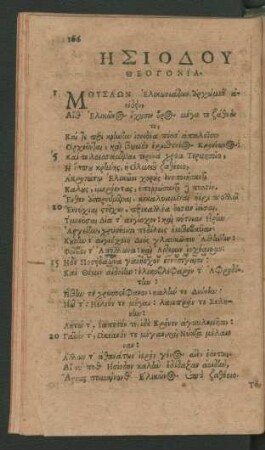 166
ΗΣΙΟΔΟΥ
ΘΕΟΓΟΝΙΑ.
1 ΜΟΥΣΑΩΝ Ἑλικωνιάδων ἀρχώμεθ' ἀείδειν,
Αἵθ' Ἑλικῶνος ἔχουσιν ὄρος μέγα τε ζάθεόν
τε,
Καί τε περὶ κρήνην ἰοειδέα πόσσ' ἁπαλοῖσιν
Ὀρχεῦνται, καὶ βωμὸν ἐρισθενέος Κρονίωνος.
5 Καί τε λοεσσάμεναι τέρενα χρόα Περμησσοῖο,
Ἢ ἵππου κρήνης, ἢ Ὀλμειοῦ ζαθέοιο,
Ἀκροτάτῳ Ἑλικῶνι χοροὺς ἐνεποιήσαντο
Καλοὺς, ἱμερόεντας,
Ἔνθεν ἀπορνύμεναι, κεκαλυμμέναι ἠέρι πολλῇ
10 Ἐννύχιαι στεῖχον,
Ὑμνεῦσαι Δία τ' αἰγίοχον καὶ πότνιαν Ἥρην
Ἀργείην, χρυσέοισι πεδίλοις ἐμβεβαυῖαν·
Κούρην τ' αἰγιόχοιο Διὸς γλαυκῶπιν Ἀθήνην·
Φοῖβόν τ' Ἀπόλλωνα καὶ Ἄρτεμιν ἰοχέαιραν·
15 Ἠδὲ Ποσειδάωνα
Καὶ Θέμιν αἰδοίην, ἑλικοβλέφαρόν τ' Ἀφροδίτην·
Ἥβην τε χρυσοστέφανον, καλήν τε Διώνην·
Ἠῶ τ', Ἠέλιόν τε μέγαν, λαμπρήν τε Σελήνην·
Λητώ τ', Ἰαπετόν τε, ἰδὲ Κρόνον ἀγκυλομήτην·
20 Γαῖάν τ', Ὠκεανόν τε μέγαν, καὶ Νύκτα μέλαιναν·
Ἄλλων τ' ἀθανάτων ἱερὸν γένος αἰὲν ἐόντων.
Αἵ νύ ποθ' Ἡσίοδον καλὴν ἐδίδαξαν ἀοιδὴν,
Ἄρνας ποιμαίνονθ' Ἑλικῶνος ὕπο ζαθέοιο.